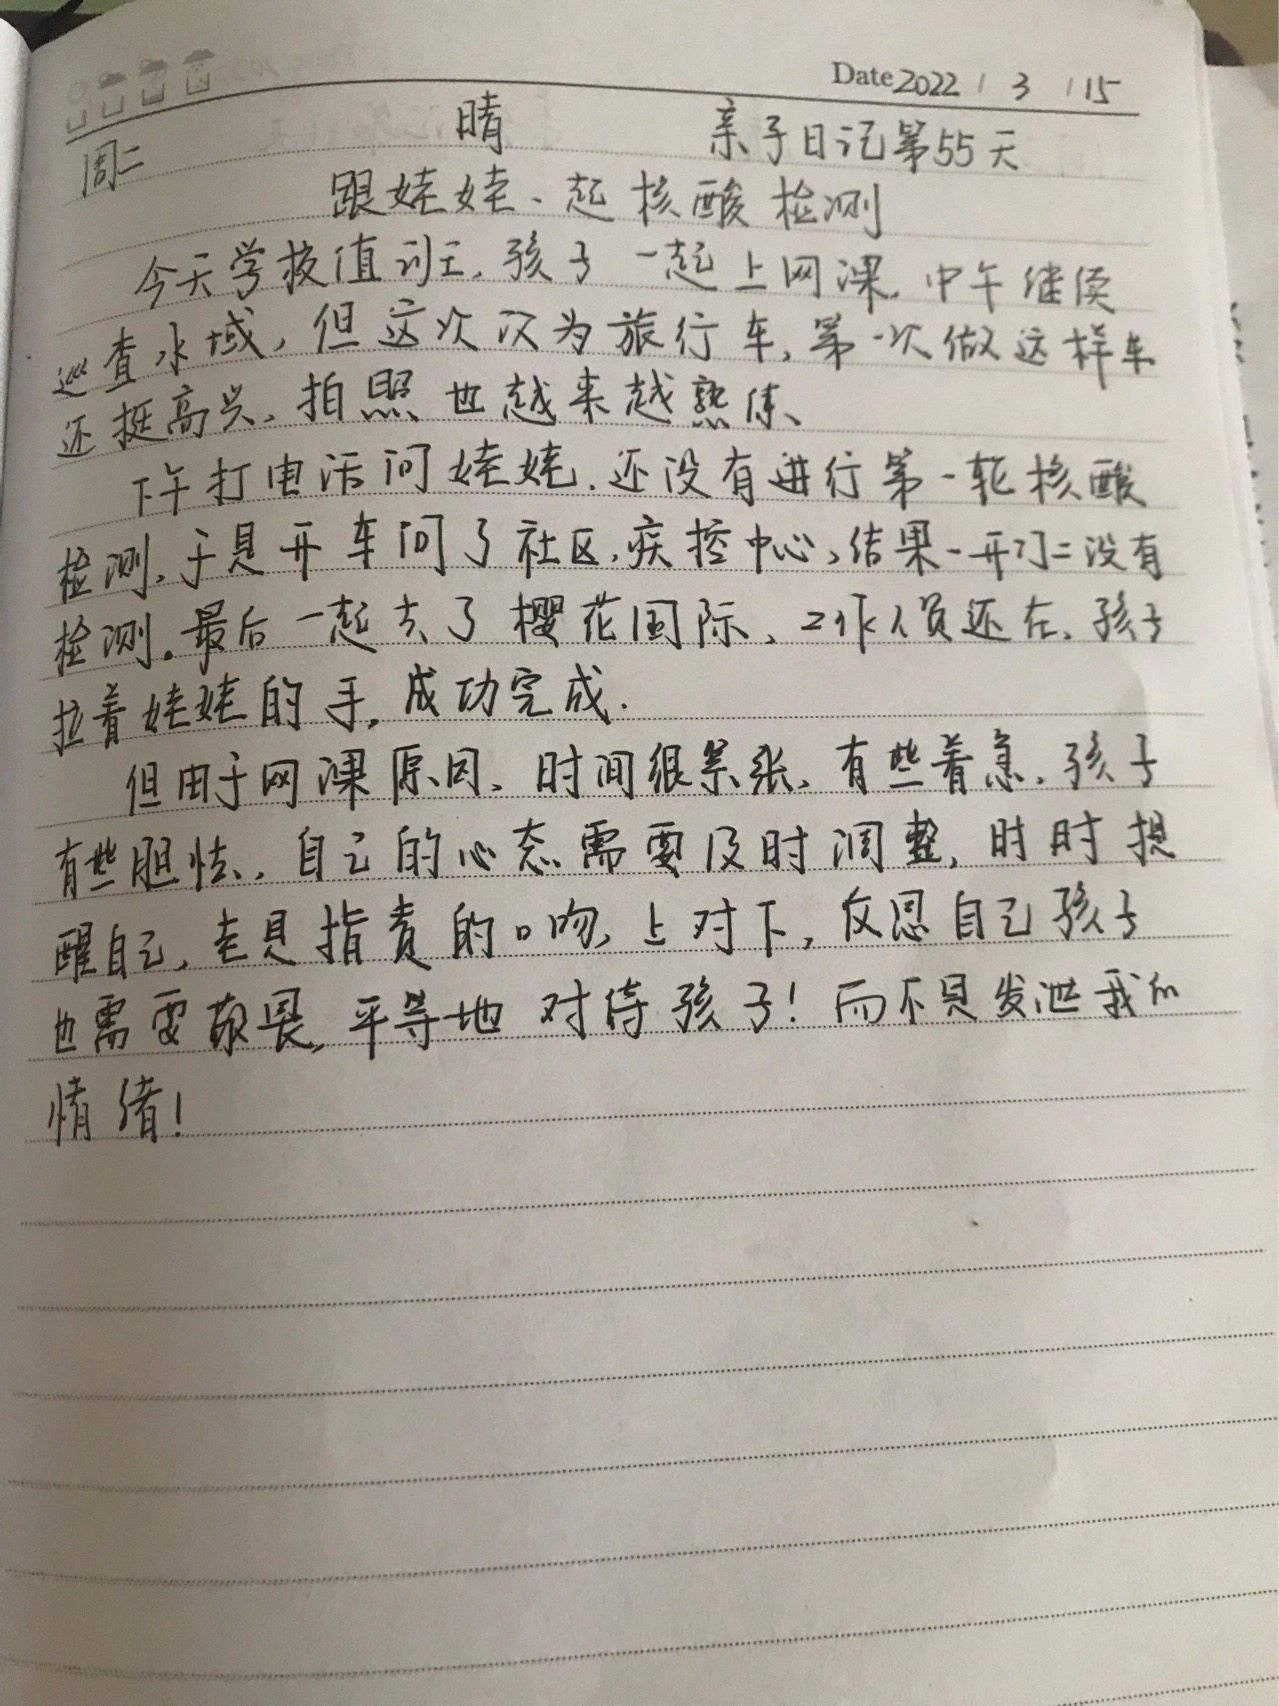 Date 2022 / 3 / 15
周二 晴 亲子日记第55天
跟娃娃一起核酸检测
今天学校值班,孩子一起上网课,中午继续
巡查水域,但这次改为旅行车,第一次做这样车
还挺高兴,拍照也越来越熟练、
下午打电话问娃娃,还没有进行第一轮核酸
检测,于是开车问了社区,疾控中心,结果一开门二没有
检测。最后一起去了樱花国际,工作人员还在,孩子
拉着娃娃的手,成功完成.
但由于网课原因,时间很紧张,有些着急,孩子
有些胆怯,自己的心态需要及时调整,时时提
醒自己,老是指责的口吻,上对下,反思自己孩子
也需要敬畏,平等地对待孩子!而不是发泄我的
情绪!